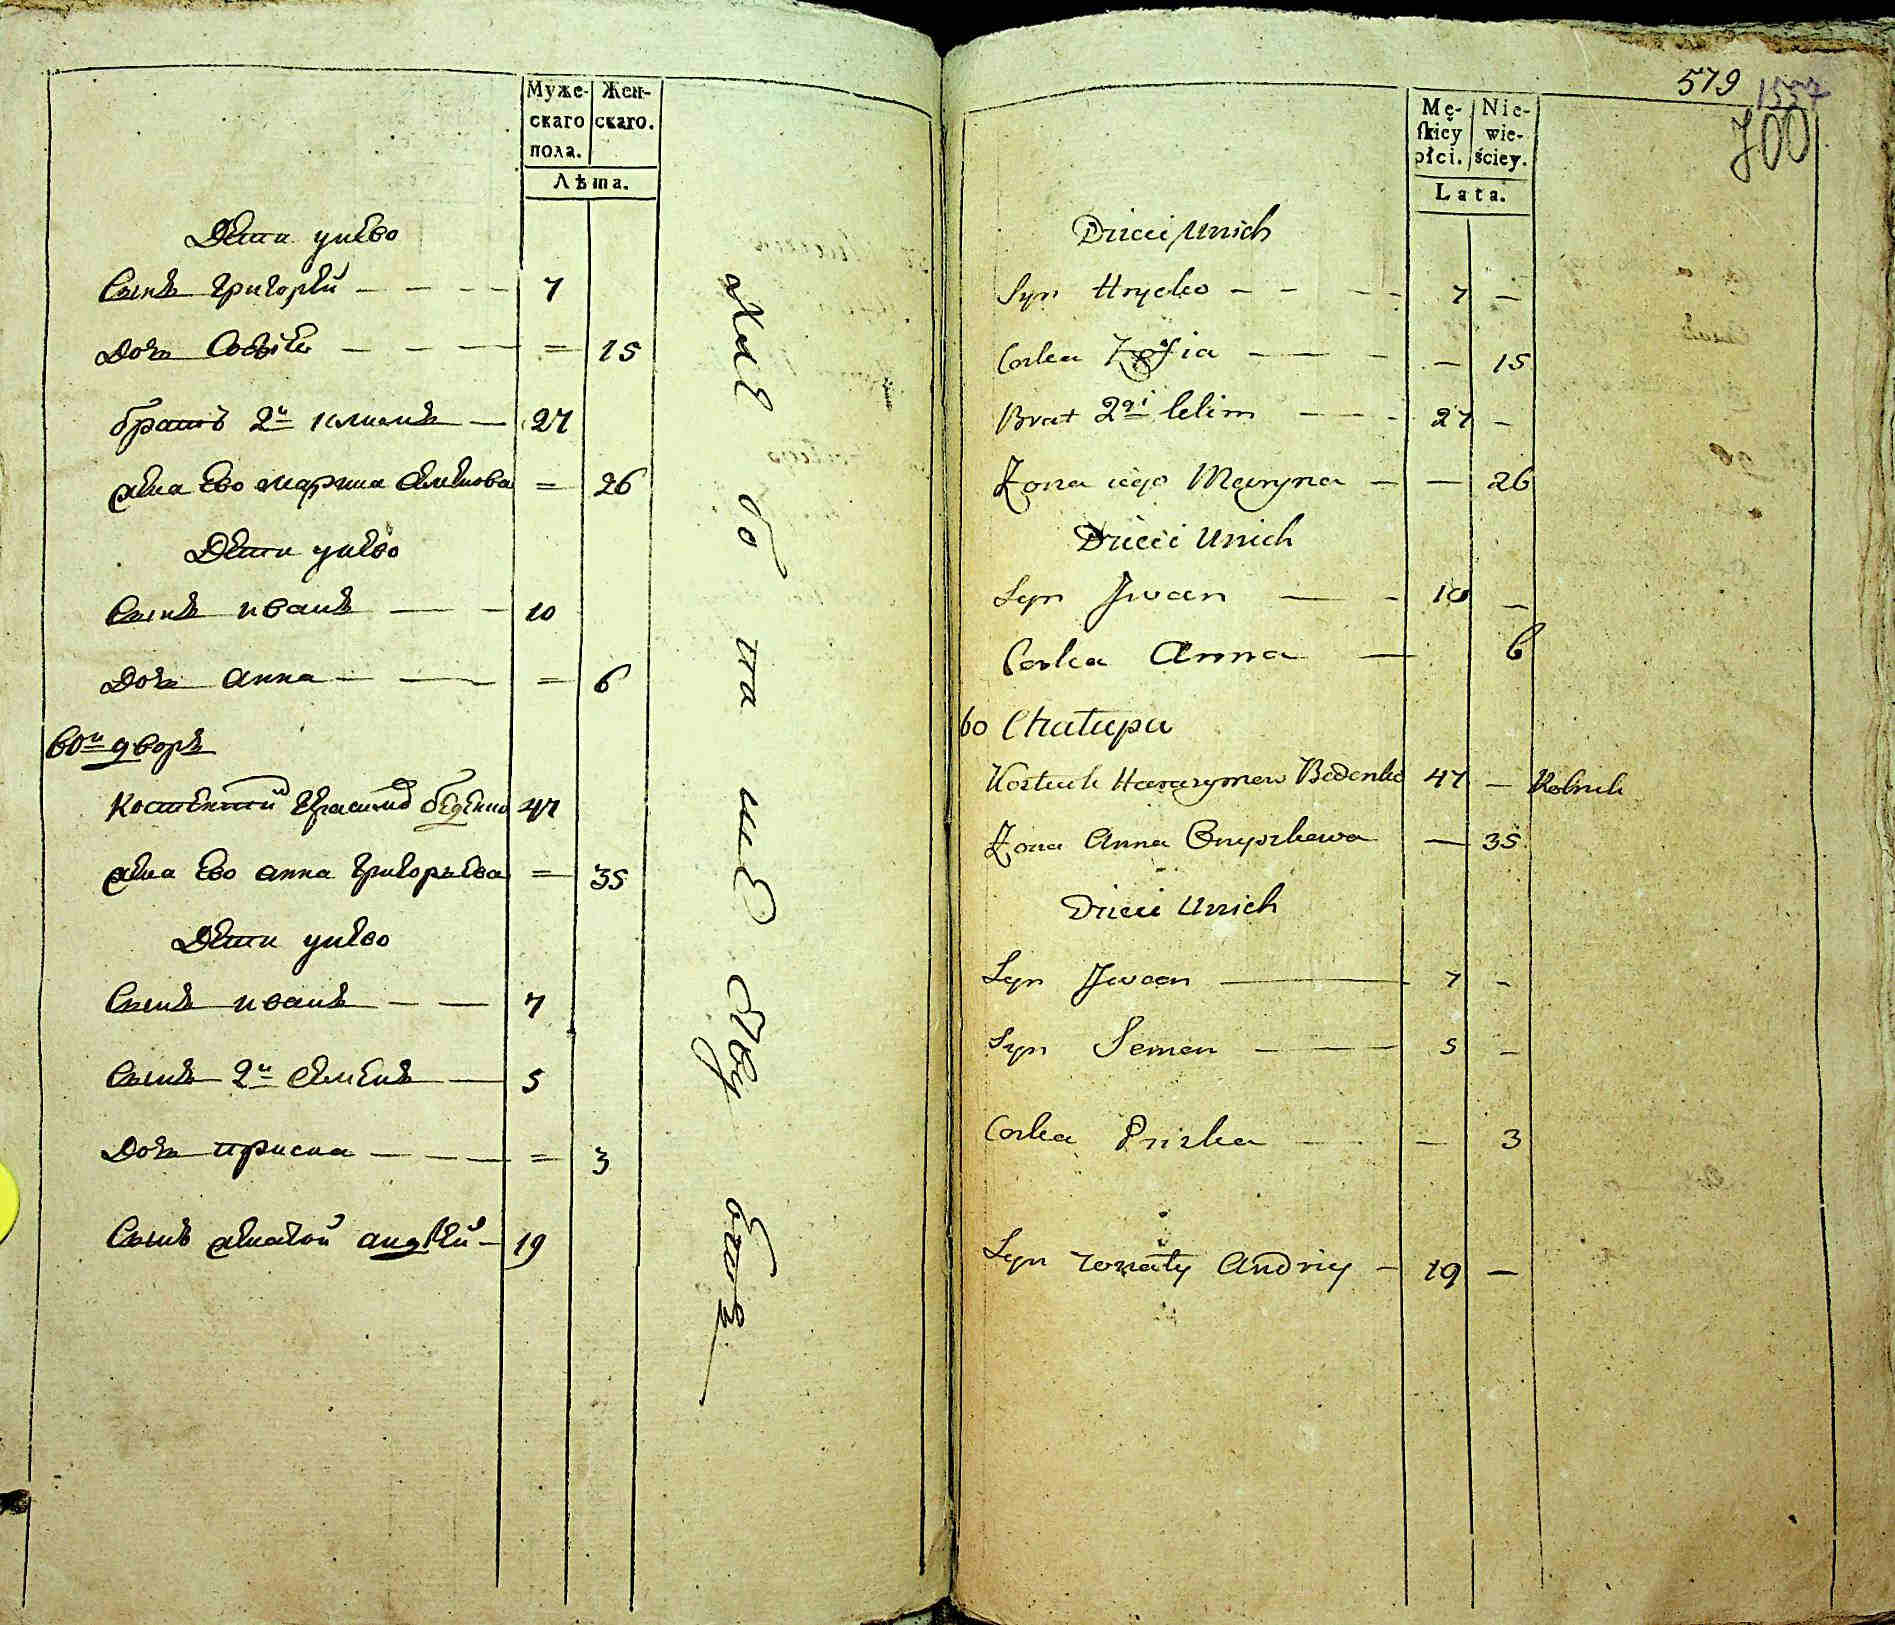 Муже-
скаго
пола.
Жен-
скаго.
Лѣта.
Дети унево
Сынъ григорей 7
Дочь Софія = 15
братъ 2й климъ 27
жена ево марина Семенова = 26
Дети унево
Сынъ иванъ 10
Дочь анна = 6
60й дворъ
Костентий Герасимов беденко 47
жена ево анна григорьева = 35
Дети унево
Сынъ иванъ 7
Сынъ 2й Семенъ 5
Дочь приска = 3
Сынъ женатой андрей 19
579
1557
700
Mę-
skiey
płci.
Nie-
wie-
ściey.
Lata.
Dzieci Unich
Syn Hrycko 7 –
Corka Zofia – 15
Brat 2gi klim 27 –
Zona iego Maryna – 26
Dzieci Unich
Syn Iwan 10 –
Corka Anna – 6
60 Chałupa
Kostiuk Harasymow Bedenko 47 – Rolnik
Zona Anna – 35
Dzieci Unich
Syn Iwan 7 –
Syn Semen 5 –
Corka Priska – 3
Syn zonaty Andriy 19 –